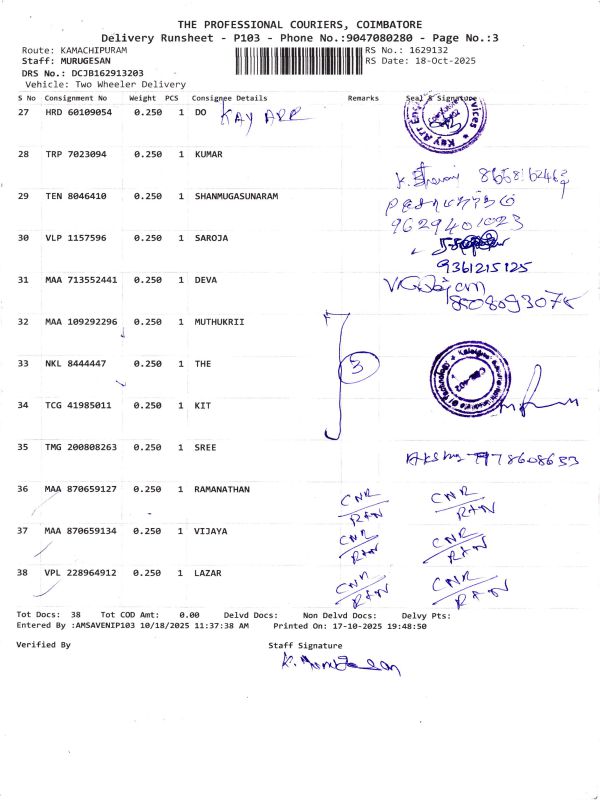 THE PROFESSIONAL COURIERS, COIMBATORE
Delivery Runsheet - P103 - Phone No.:9047080280 - Page No.:3
Route: KAMACHIPURAM RS No.: 1629132
Staff: MURUGESAN RS Date: 18-Oct-2025
DRS No.: DCJB162913203
Vehicle: Two Wheeler Delivery
S No Consignment No Weight PCS Consignee Details Remarks Seal & Signature
27 HRD 60109054 0.250 1 DO KAY ARR
28 TRP 7023094 0.250 1 KUMAR
29 TEN 8046410 0.250 1 SHANMUGASUNARAM
9629401023
30 VLP 1157596 0.250 1 SAROJA
9361215125
31 MAA 713552441 0.250 1 DEVA
32 MAA 109292296 0.250 1 MUTHUKRII
33 NKL 8444447 0.250 1 THE 3
34 TCG 41985011 0.250 1 KIT
35 TMG 200808263 0.250 1 SREE
36 MAA 870659127 0.250 1 RAMANATHAN CNR CNR
37 MAA 870659134 0.250 1 VIJAYA CNR CNR
38 VPL 228964912 0.250 1 LAZAR CNR CNR
Tot Docs: 38 Tot COD Amt: 0.00 Delvd Docs: Non Delvd Docs: Delvy Pts:
Entered By :AMSAVENIP103 10/18/2025 11:37:38 AM Printed On: 17-10-2025 19:48:50
Verified By Staff Signature